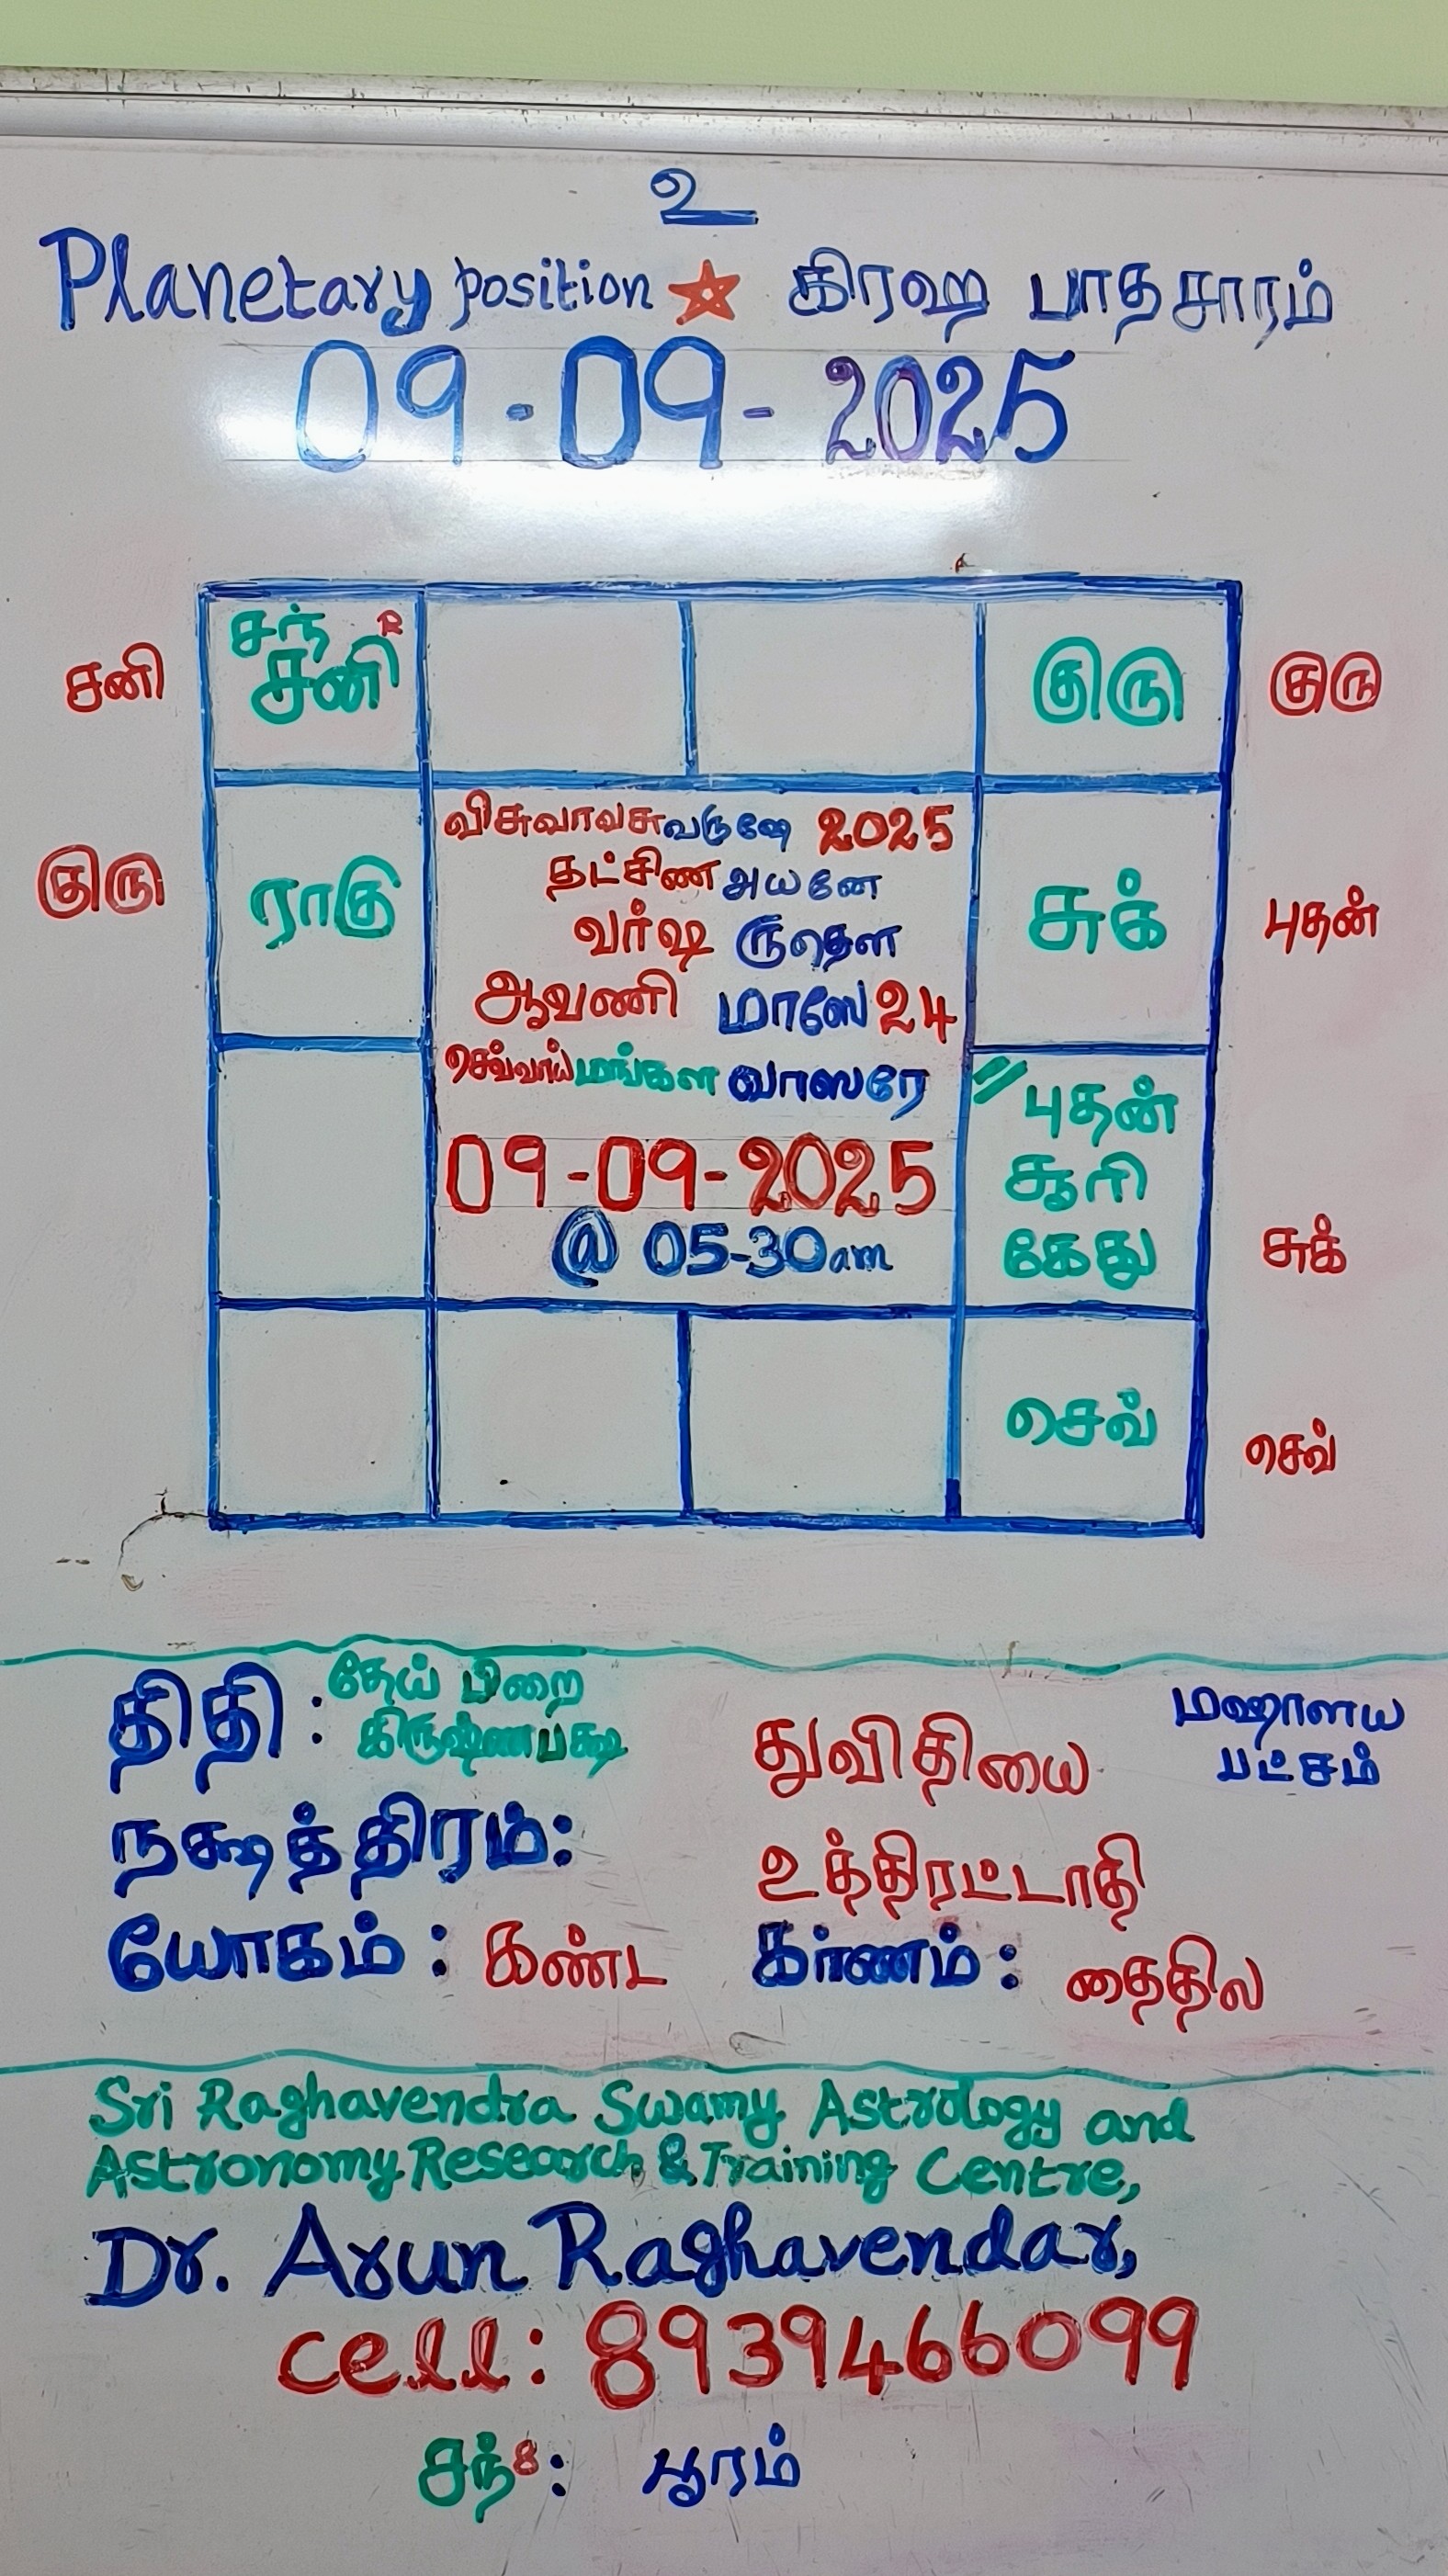 உ
Planetary position ☆ கிரஹ பாதசாரம்
09-09-2025
சனி சந் சனி R குரு குரு
குரு ராகு சுக் புதன்
விசுவாவசுவருஷே 2025
தட்சிண அயனே
வர்ஷ ருதௌ
ஆவணி மாஸே 24
செவ்வாய் மங்கள வாஸரே
09-09-2025
@ 05-30am
புதன்
சூரி
கேது சுக்
செவ் செவ்
திதி: தேய் பிறை
கிருஷ்ண பக்ஷ துவிதியை மஹாளய
பட்சம்
நக்ஷத்திரம்: உத்திரட்டாதி
யோகம்: கண்ட கர்ணம்: தைதில
Sri Raghavendra Swamy Astrology and
Astronomy Research & Training Centre,
Dr. Arun Raghavendar,
cell: 8939466099
சந் 8: பூரம்